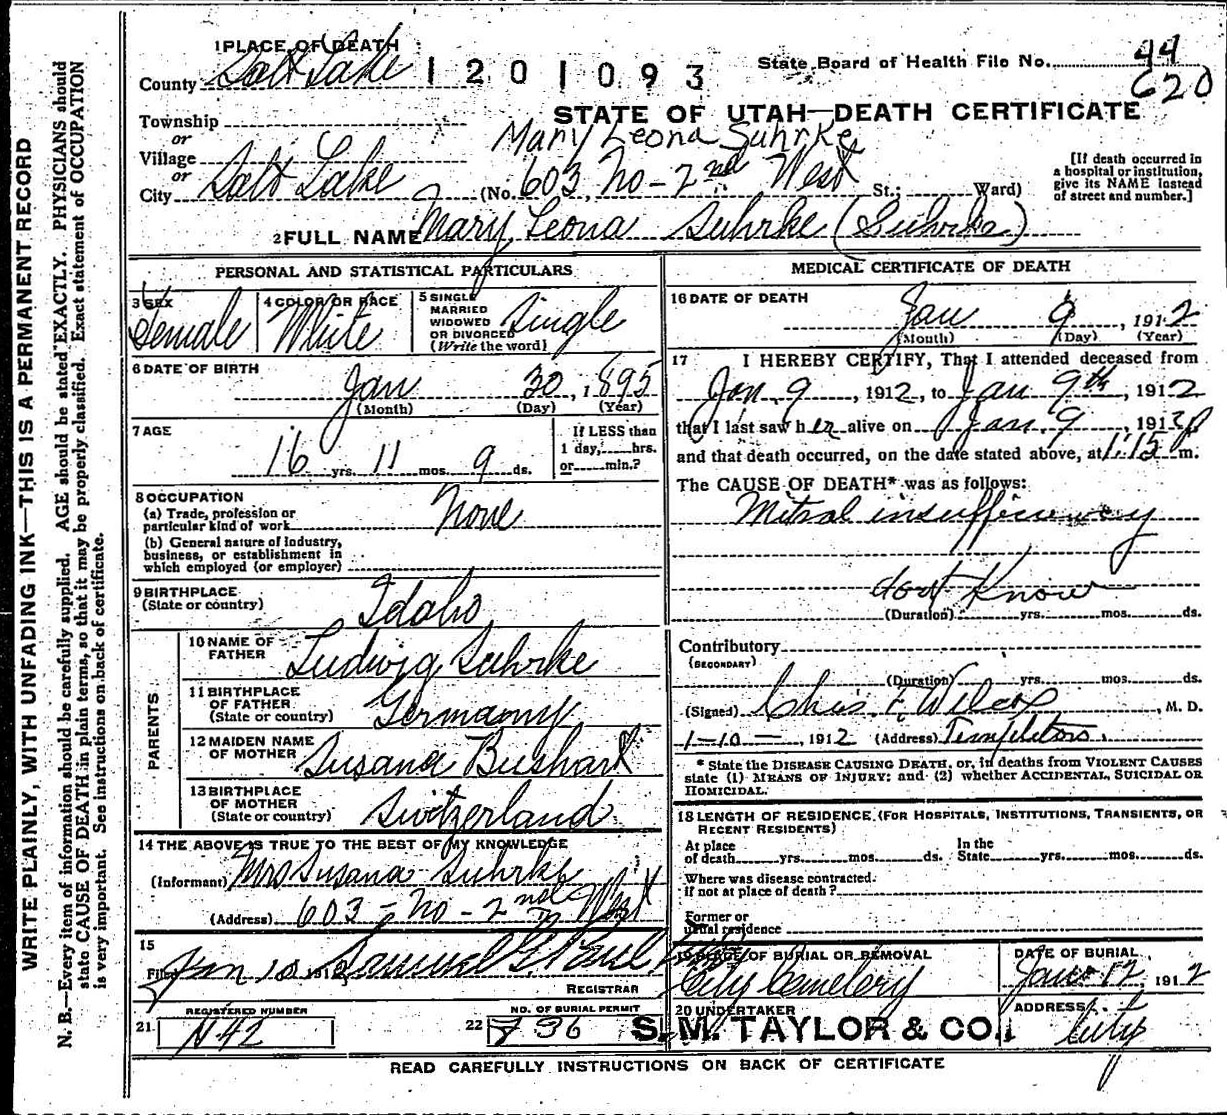 WRITE PLAINLY, WITH UNFADING INK—THIS IS A PERMANENT RECORD
N. B.—Every item of information should be carefully supplied. AGE should be stated EXACTLY. PHYSICIANS should
state CAUSE OF DEATH in plain terms, so that it may be properly classified. Exact statement of OCCUPATION
is very important. See instructions on back of certificate.
1 PLACE OF DEATH
County Salt Lake
1201093
State Board of Health File No. 44
620
STATE OF UTAH—DEATH CERTIFICATE
Township
or
Village
or
City Salt Lake
Mary Leona Suhrke
(No. 603 No - 2nd West St.; Ward)
[If death occurred in
a hospital or institution,
give its NAME instead
of street and number.]
2 FULL NAME Mary Leona Suhrke (Suhrke)
PERSONAL AND STATISTICAL PARTICULARS
3 SEX Female
4 COLOR OR RACE White
5 SINGLE
MARRIED
WIDOWED
OR DIVORCED
(Write the word) Single
6 DATE OF BIRTH
Jan 30, 1895
(Month) (Day) (Year)
7 AGE
16 yrs. 11 mos. 9 ds.
If LESS than
1 day, hrs.
or min.?
8 OCCUPATION
(a) Trade, profession or
particular kind of work None
(b) General nature of industry,
business, or establishment in
which employed (or employer)
9 BIRTHPLACE
(State or country) Idaho
PARENTS
10 NAME OF
FATHER Ludwig Suhrke
11 BIRTHPLACE
OF FATHER
(State or country) Germany
12 MAIDEN NAME
OF MOTHER Susana Bushart
13 BIRTHPLACE
OF MOTHER
(State or country) Switzerland
14 THE ABOVE IS TRUE TO THE BEST OF MY KNOWLEDGE
(Informant) Mrs Susana Suhrke
(Address) 603 - No - 2nd West
15
Filed Jan 10 1912, Samuel G. Paul
REGISTRAR
REGISTERED NUMBER
21. N-42
NO. OF BURIAL PERMIT
22 736
MEDICAL CERTIFICATE OF DEATH
16 DATE OF DEATH
Jan 9, 1912
(Month) (Day) (Year)
17 I HEREBY CERTIFY, That I attended deceased from
Jan. 9, 1912, to Jan 9th, 1912
that I last saw her alive on Jan. 9, 1912
and that death occurred, on the date stated above, at 1:15 p m.
The CAUSE OF DEATH* was as follows:
Mitral insufficiency
dont Know
(Duration) yrs. mos. ds.
Contributory
(SECONDARY)
(Duration) yrs. mos. ds.
(Signed) Chis. F. Wilcox, M. D.
1-10-, 1912 (Address) Templeton.
* State the DISEASE CAUSING DEATH, or, in deaths from VIOLENT CAUSES
state (1) MEANS OF INJURY; and (2) whether ACCIDENTAL, SUICIDAL OR
HOMICIDAL.
18 LENGTH OF RESIDENCE (FOR HOSPITALS, INSTITUTIONS, TRANSIENTS, OR
RECENT RESIDENTS)
At place
of death yrs. mos. ds.
In the
State yrs. mos. ds.
Where was disease contracted
if not at place of death?
Former or
usual residence
19 PLACE OF BURIAL OR REMOVAL
City Cemetery
DATE OF BURIAL
Jan 12, 1912
20 UNDERTAKER
S. M. TAYLOR & CO.
ADDRESS
City
READ CAREFULLY INSTRUCTIONS ON BACK OF CERTIFICATE